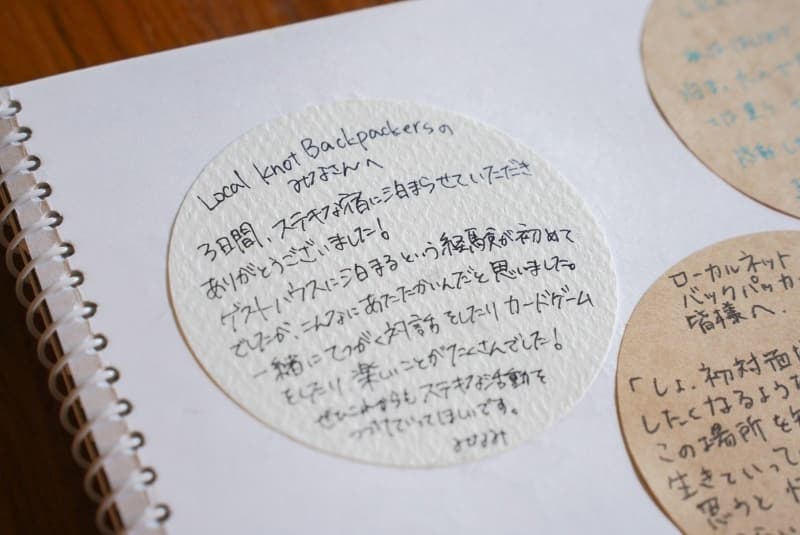 Local Knot Backpackersの
みなさんへ
3日間、ステキな宿に泊まらせていただき
ありがとうございました!
ゲストハウスに泊まるという経験が初めて
でしたが、こんなにあたたかいんだと思いました。
一緒にてつがく対話をしたりカードゲーム
をしたり楽しいことがたくさんでした!
ぜひこれからもステキな活動を
つづけていってほしいです。
みなみ
ローカルネット
バックパッカ
皆様へ.
「しょ、初対面
したくなるような
この場所を
生きていって
思うと